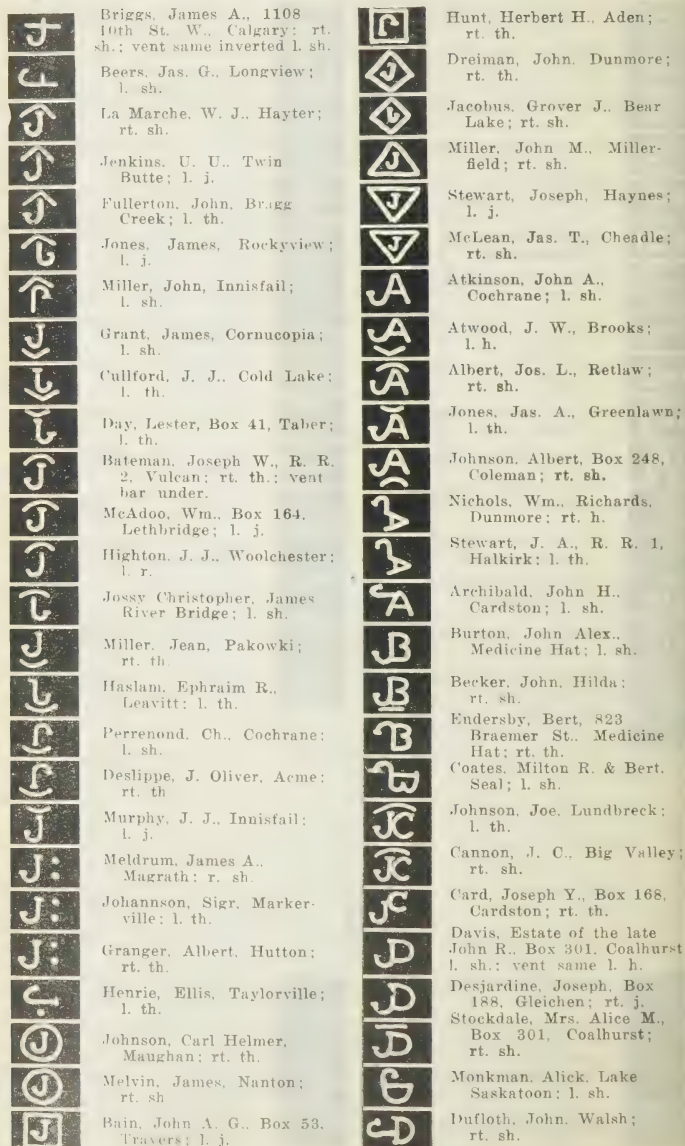 Briggs, James A., 1108
10th St. W., Calgary; rt.
sh.; vent same inverted l. sh.
Beers, Jas. G., Longview;
l. sh.
La Marche, W. J., Hayter;
rt. sh.
Jenkins, U. U., Twin
Butte; l. j.
Fullerton, John, Bragg
Creek; l. th.
Jones, James, Rockyview;
l. j.
Miller, John, Innisfail;
l. sh.
Grant, James, Cornucopia;
l. sh.
Cullford, J. J., Cold Lake;
l. th.
Day, Lester, Box 41, Taber;
l. th.
Bateman, Joseph W., R. R.
2, Vulcan; rt. th.; vent
bar under.
McAdoo, Wm., Box 164,
Lethbridge; l. j.
Highton, J. J., Woolchester;
l. r.
Jossy Christopher, James
River Bridge; l. sh.
Miller, Jean, Pakowki;
rt. th.
Haslam, Ephraim R.,
Leavitt; l. th.
Perrenond, Ch., Cochrane;
l. sh.
Deslippe, J. Oliver, Acme;
rt. th
Murphy, J. J., Innisfail;
l. j.
Meldrum, James A.,
Magrath; r. sh.
Johannson, Sigr, Marker-
ville; l. th.
Granger, Albert, Hutton;
rt. th.
Henrie, Ellis, Taylorville;
l. th.
Johnson, Carl Helmer,
Maughan; rt. th.
Melvin, James, Nanton;
rt. sh
Bain, John A. G., Box 53,
Travers; l. j.
Hunt, Herbert H., Aden;
rt. th.
Dreiman, John, Dunmore;
rt. th.
Jacobus, Grover J., Bear
Lake; rt. sh.
Miller, John M., Miller-
field; rt. sh.
Stewart, Joseph, Haynes;
l. j.
McLean, Jas. T., Cheadle;
rt. sh.
Atkinson, John A.,
Cochrane; l. sh.
Atwood, J. W., Brooks;
l. h.
Albert, Jos. L., Retlaw;
rt. sh.
Jones, Jas. A., Greenlawn;
l. th.
Johnson, Albert, Box 248,
Coleman; rt. sh.
Nichols, Wm., Richards,
Dunmore; rt. h.
Stewart, J. A., R. R. 1,
Halkirk; l. th.
Archibald, John H.,
Cardston; l. sh.
Burton, John Alex.,
Medicine Hat; l. sh.
Becker, John, Hilda;
rt. sh.
Endersby, Bert, 823
Braemer St., Medicine
Hat; rt. th.
Coates, Milton R. & Bert,
Seal; l. sh.
Johnson, Joe, Lundbreck;
l. th.
Cannon, J. C., Big Valley;
rt. sh.
Card, Joseph Y., Box 168,
Cardston; rt. th.
Davis, Estate of the late
John R., Box 301, Coalhurst
l. sh.; vent same l. h.
Desjardine, Joseph, Box
188, Gleichen; rt. j.
Stockdale, Mrs. Alice M.,
Box 301, Coalhurst;
rt. sh.
Monkman, Alick, Lake
Saskatoon; l. sh.
Dufloth, John, Walsh;
rt. sh.